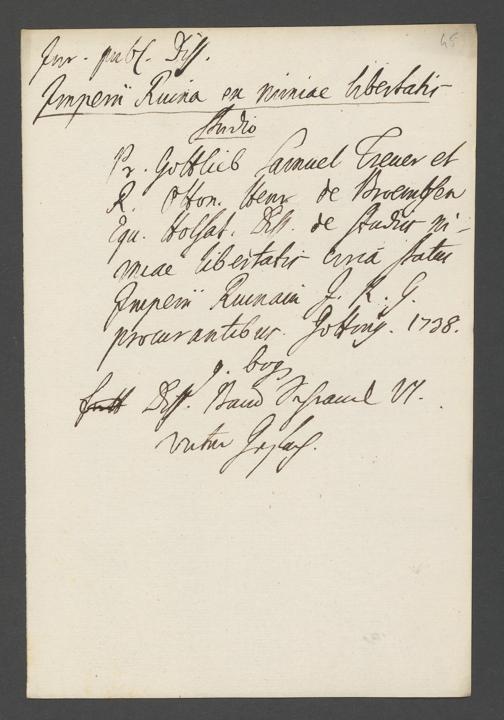 45
Jur. publ. Diss.
Imperii Ruina ex nimiae libertatis
studio
Pr. Gottlieb Samuel Treuer et
R. Otton. Henr. de Broembsen
Equ. Holsat. Diss. de studiis ni-
miae libertatis circa statum
Imperii Ruinam J. R. G.
procurantibus. Gotting. 1738.
9. bog.
Diss. Band VI.
unter